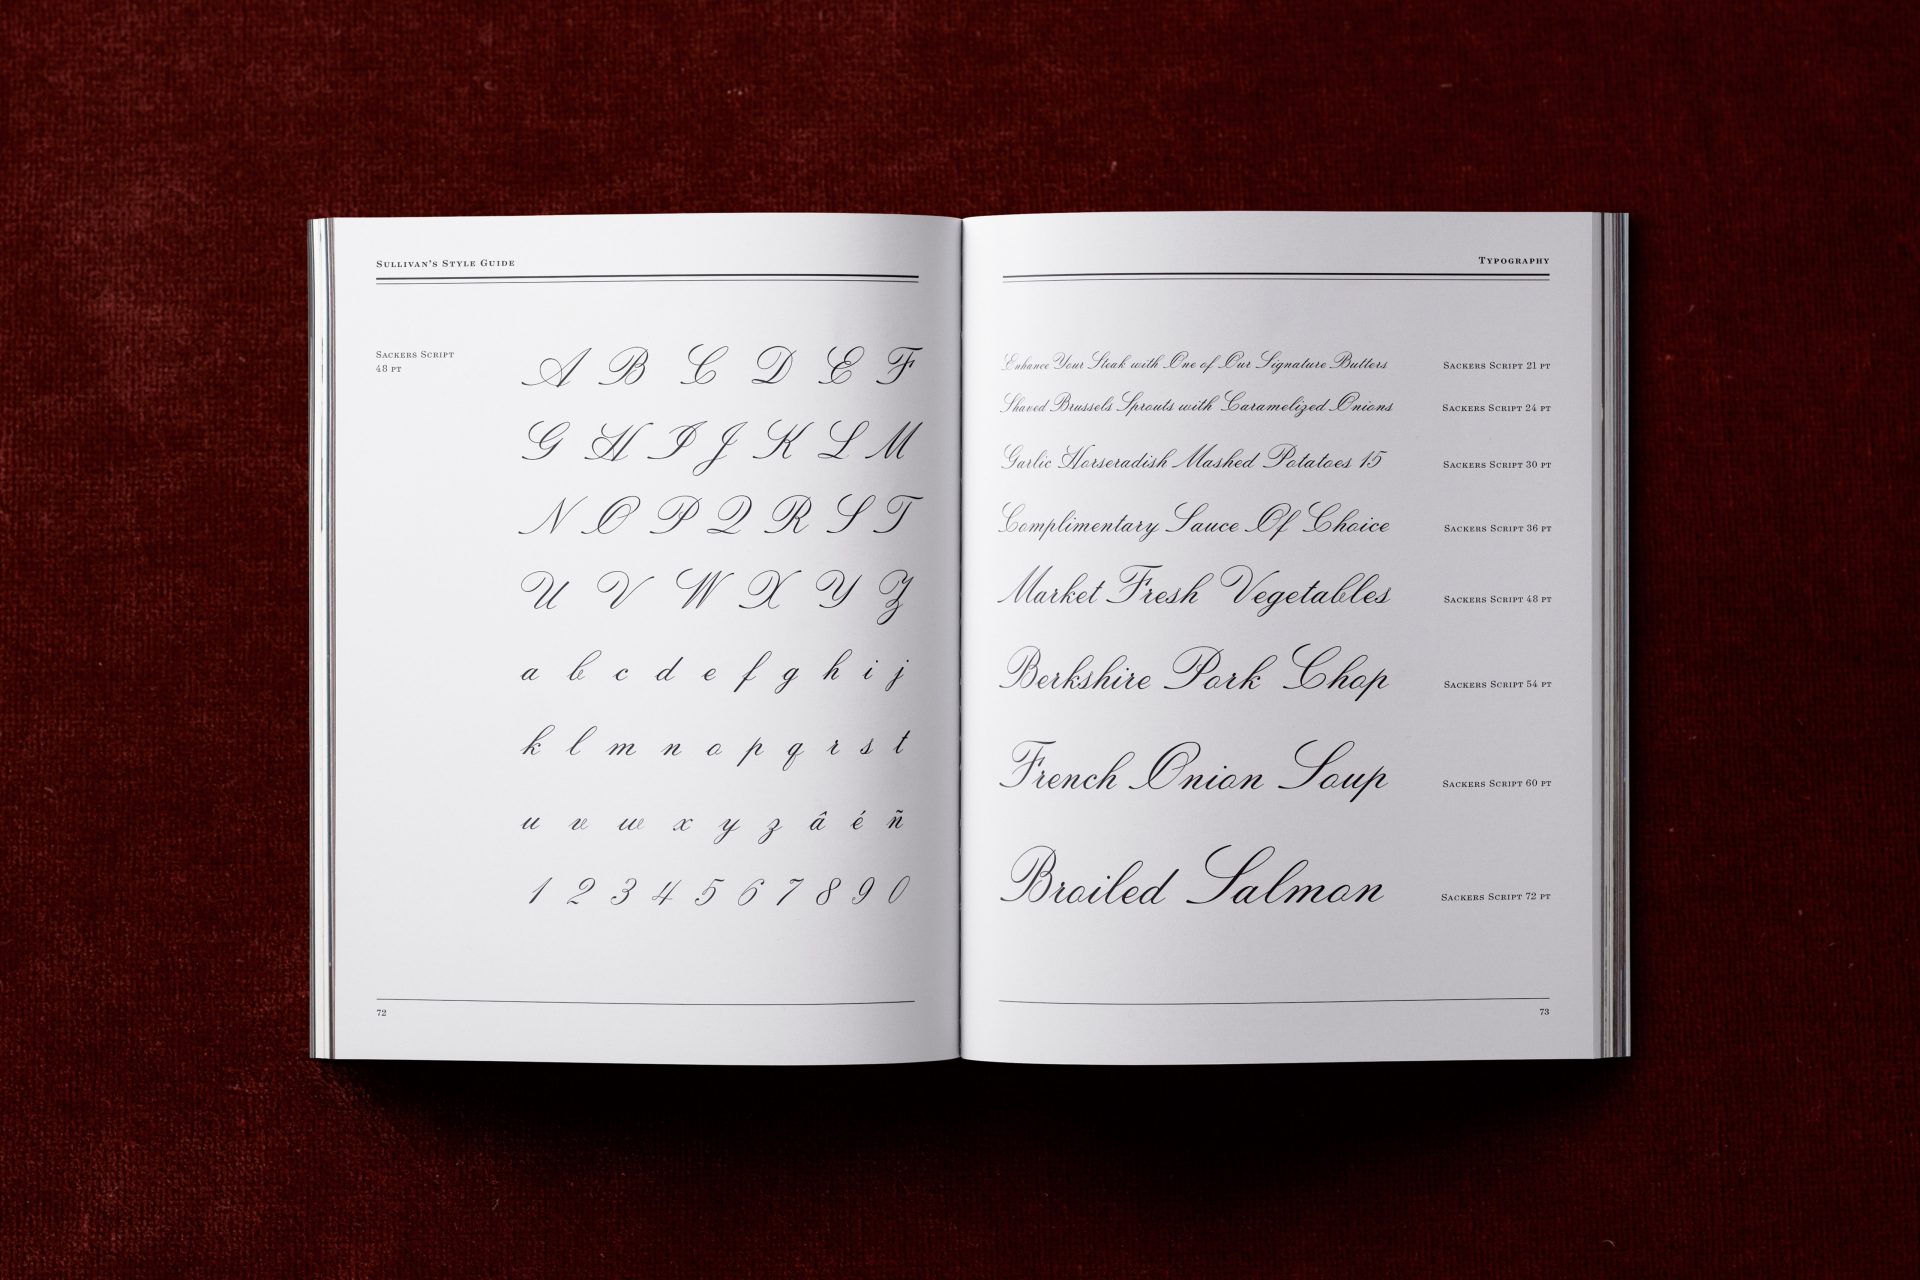 SULLIVAN'S STYLE GUIDE
SACKERS SCRIPT
48 PT
A B C D E F
G H I J K L M
N O P Q R S T
U V W X Y Z
a b c d e f g h i j
k l m n o p q r s t
u v w x y z â é ñ
1 2 3 4 5 6 7 8 9 0
72
TYPOGRAPHY
Enhance Your Steak with One of Our Signature Butters SACKERS SCRIPT 21 PT
Shaved Brussels Sprouts with Caramelized Onions SACKERS SCRIPT 24 PT
Garlic Horseradish Mashed Potatoes 15 SACKERS SCRIPT 30 PT
Complimentary Sauce Of Choice SACKERS SCRIPT 36 PT
Market Fresh Vegetables SACKERS SCRIPT 48 PT
Berkshire Pork Chop SACKERS SCRIPT 54 PT
French Onion Soup SACKERS SCRIPT 60 PT
Broiled Salmon SACKERS SCRIPT 72 PT
73